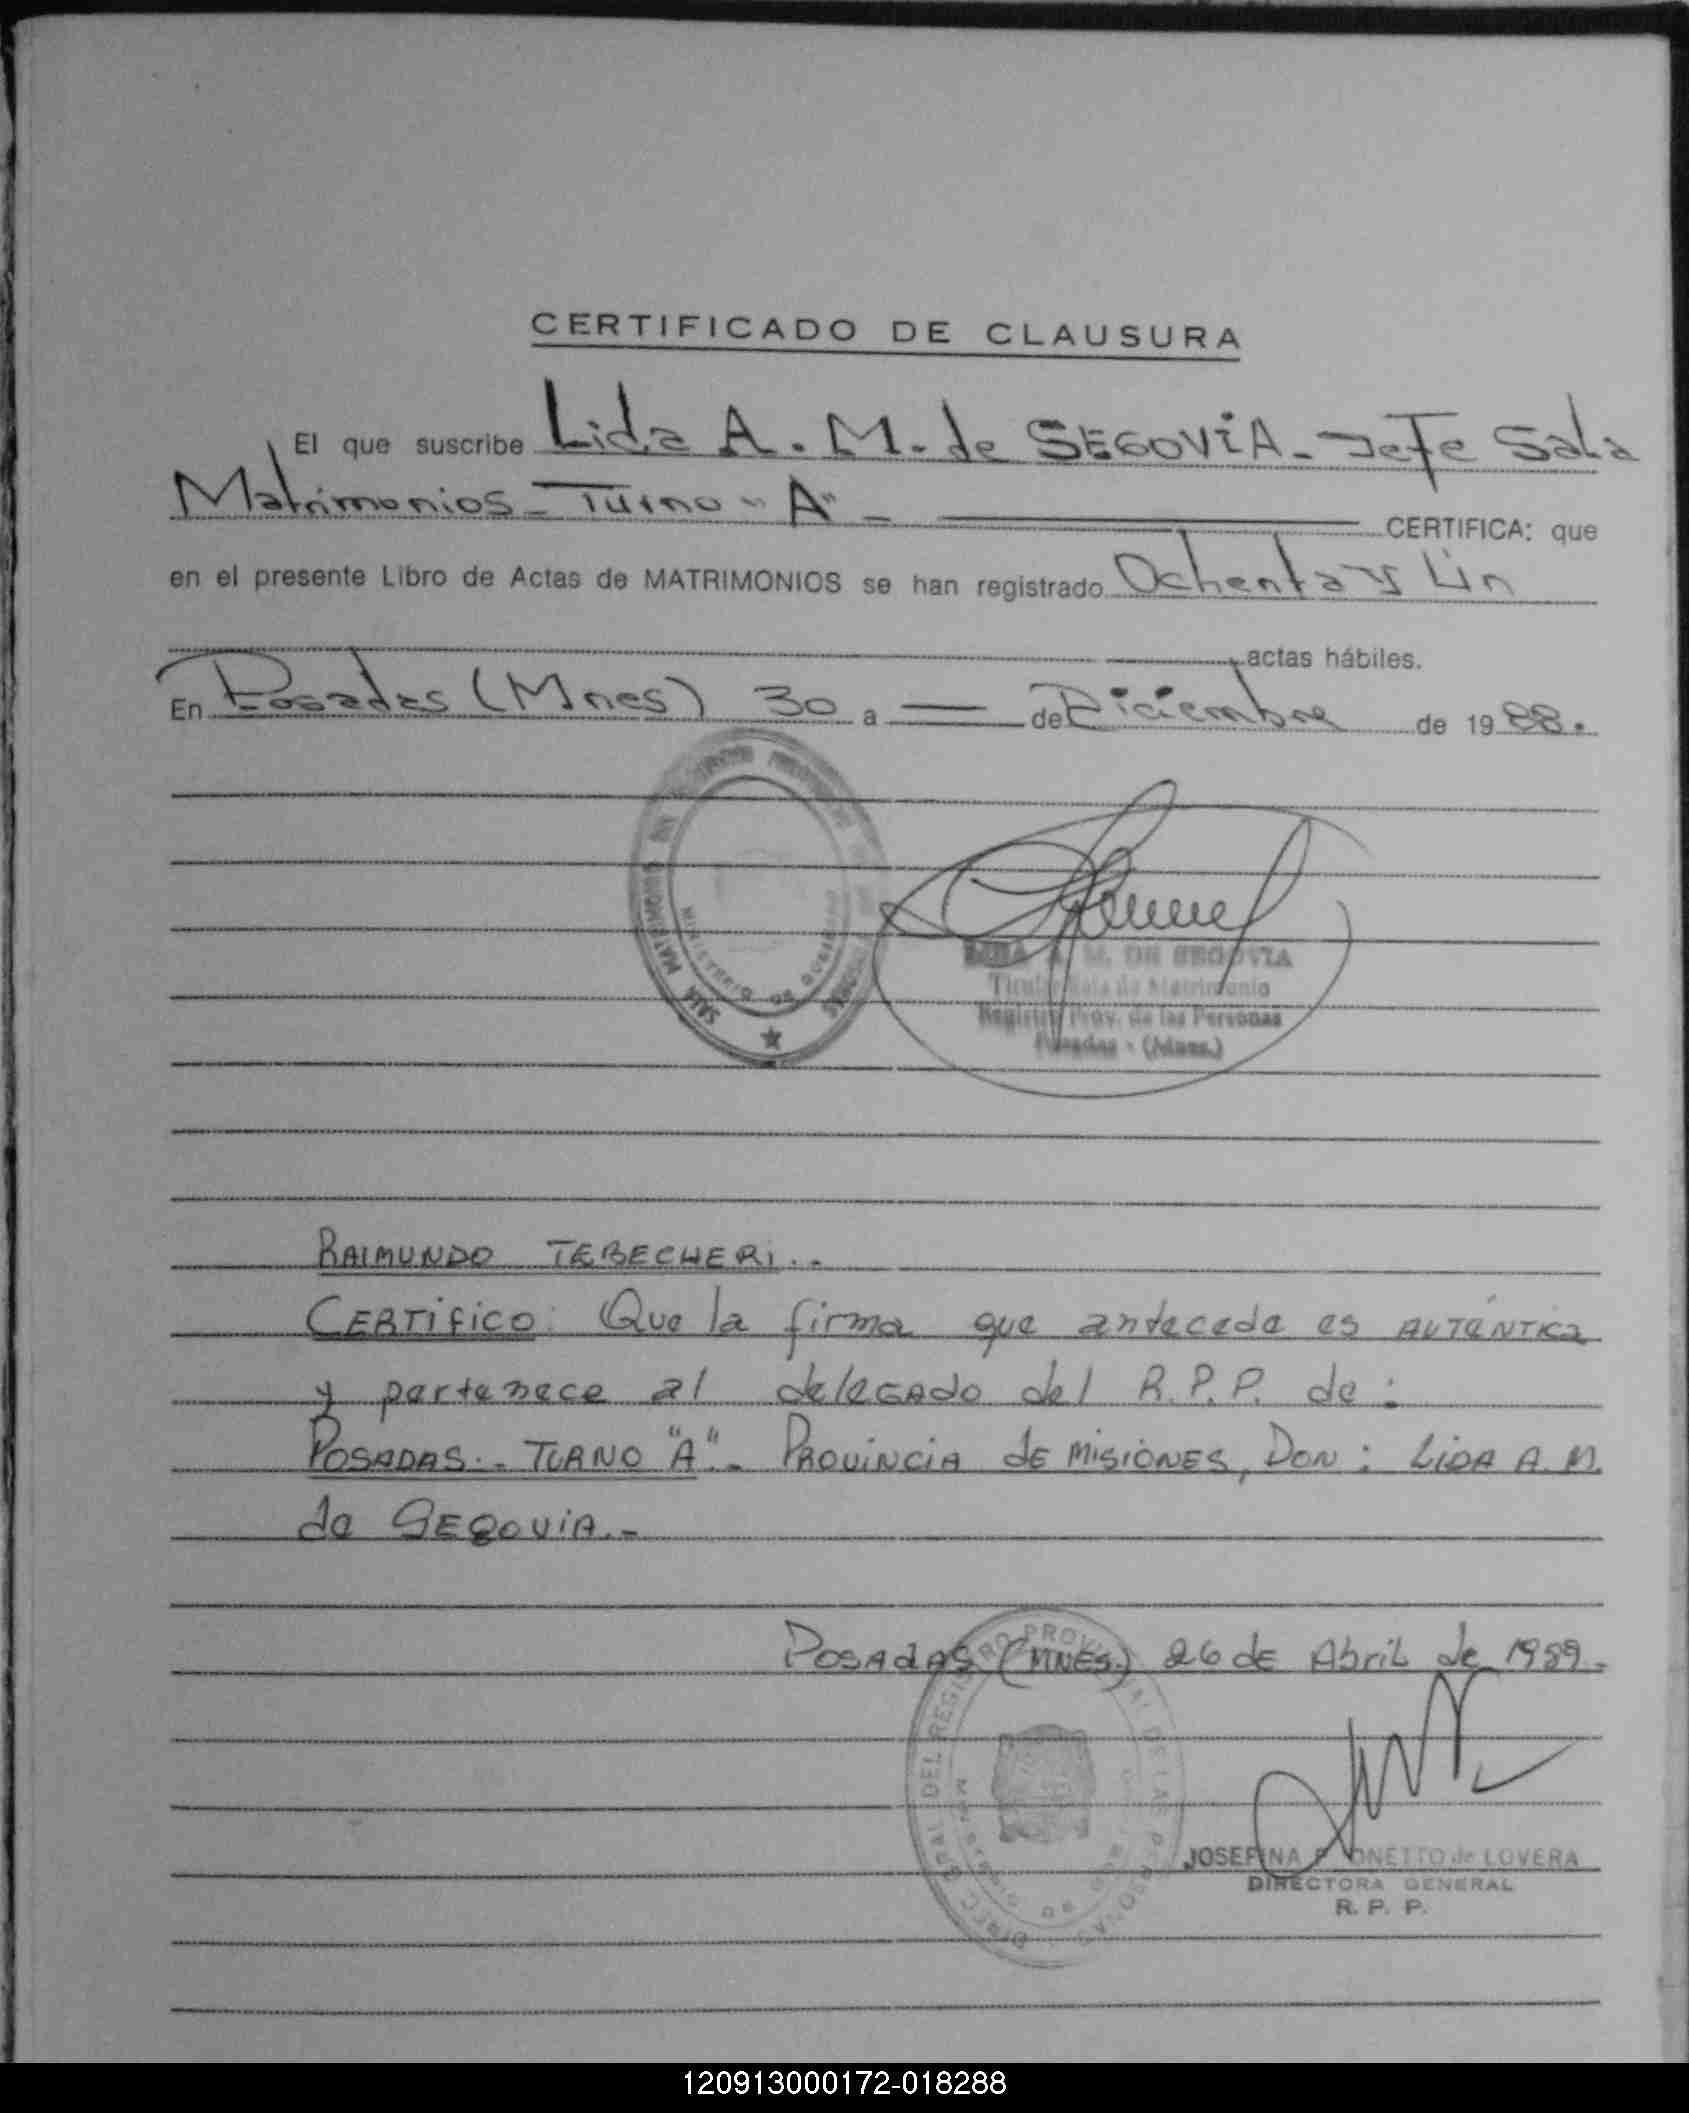 CERTIFICADO DE CLAUSURA
El que suscribe Lida A. M. de SEGOVIA - Jefe Sala
Matrimonios - Turno "A" - CERTIFICA: que
en el presente Libro de Actas de MATRIMONIOS se han registrado Ochenta y Un
actas hábiles.
En Posadas (Mnes) 30 a — de Diciembre de 1988.
SALA MATRIMONIO
MINISTERIO DE GOBIERNO
LIDA A. M. DE SEGOVIA
Titular Sala de Matrimonio
Registro Prov. de las Personas
Posadas - (Mnes.)
RAIMUNDO TEBECHERI..
CERTIFICO: Que la firma que antecede es AUTÉNTICA
y pertenece al delegado del R.P.P. de:
POSADAS.- TURNO "A".- PROVINCIA de MISIONES, DON: LIDA A. M.
de SEGOVIA.-
POSADAS (MNES.) 26 de Abril de 1989.
DIREC. GRAL. DEL REGISTRO PROVINCIAL DE LAS PERSONAS
JOSEFINA de LOVERA
DIRECTORA GENERAL
R. P. P.
120913000172-018288